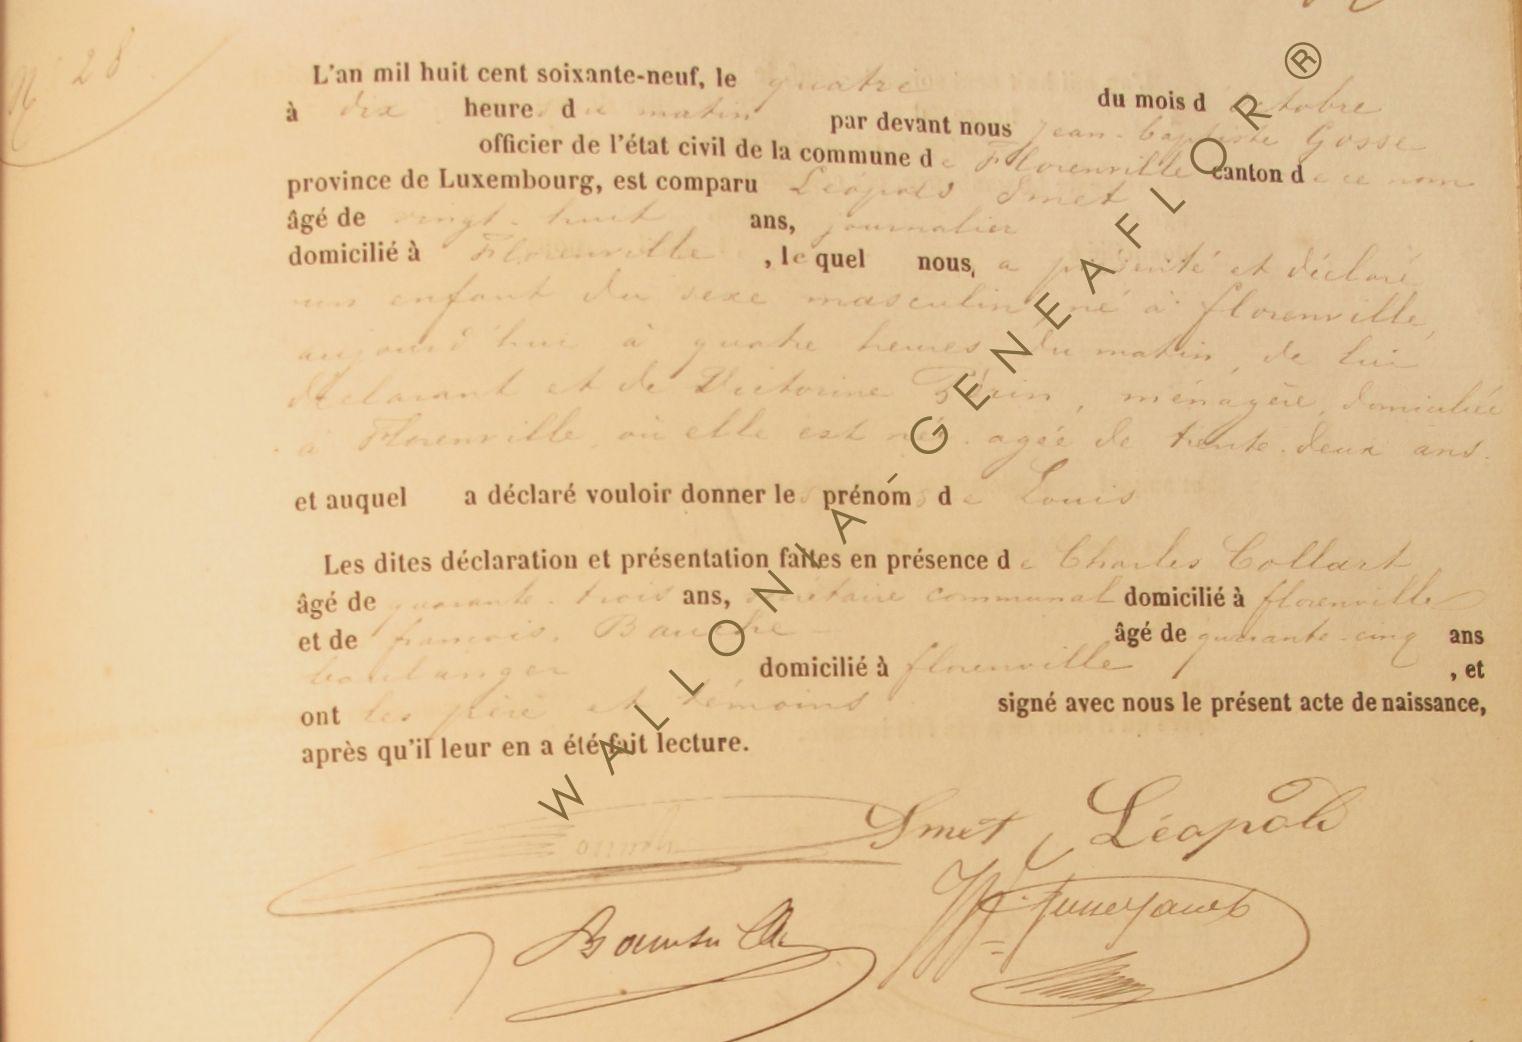 N° 28
L'an mil huit cent soixante-neuf, le quatre du mois d'octobre
à dix heures du matin par devant nous Jean-Baptiste Gosse
officier de l'état civil de la commune de Florenville canton de ce nom
province de Luxembourg, est comparu Léopold Smet
âgé de vingt-huit ans, journalier
domicilié à Florenville, lequel nous, a présenté et déclaré
un enfant du sexe masculin, né à florenville,
aujourd'hui à quatre heures du matin, de lui
déclarant et de Victorine, ménagère, domiciliée
à Florenville, où elle est née. agée de trente-deux ans.
et auquel a déclaré vouloir donner les prénoms de Louis
Les dites déclaration et présentation faites en présence de Charles Collart
âgé de quarante-trois ans, secrétaire communal domicilié à florenville
et de françois. âgé de quarante-cinq ans
boulanger domicilié à florenville, et
ont les père et témoins signé avec nous le présent acte de naissance,
après qu'il leur en a été fait lecture.
Smet Léopold
WALLONIA-GENEAFLOR®